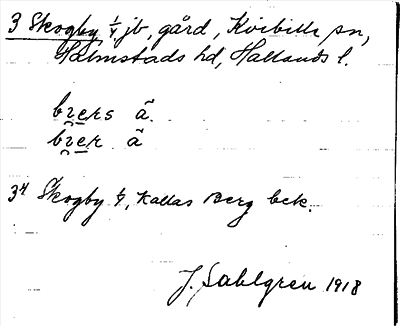 3 Skogby 1/4 jb, gård, Kvibille sn,
Halmstads hd, Hallands l.
3⁴ Skogby 1/4, kallas Berg bek.
J. Sahlgren 1918